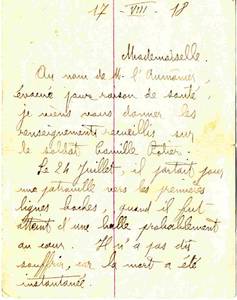 17 VIII 18
Mademoiselle.
Au nom de M. l'Aumônier
évacué pour raison de santé,
je viens vous donner les
renseignements recueillis sur
le soldat Camille Potier.
Le 24 Juillet, il partait pour
une patrouille vers les premières
lignes boches, quand il fut
atteint d'une balle probablement
au cœur. Il n'a pas dû
souffrir, car la mort a été
instantanée.